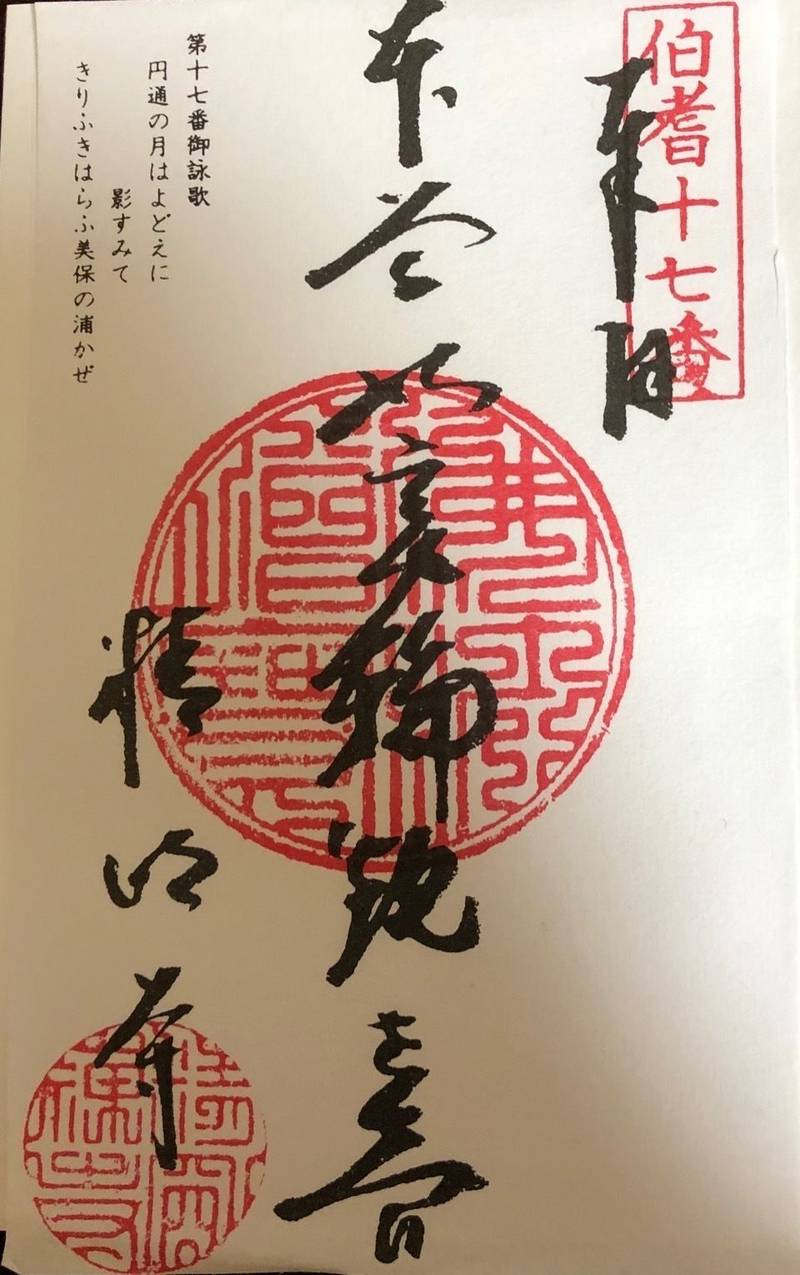 伯耆十七番
奉拝
本尊如意輪観世音
精明寺
第十七番御詠歌
円通の月はよどえに
影すみて
きりふきはらふ美保の浦かぜ